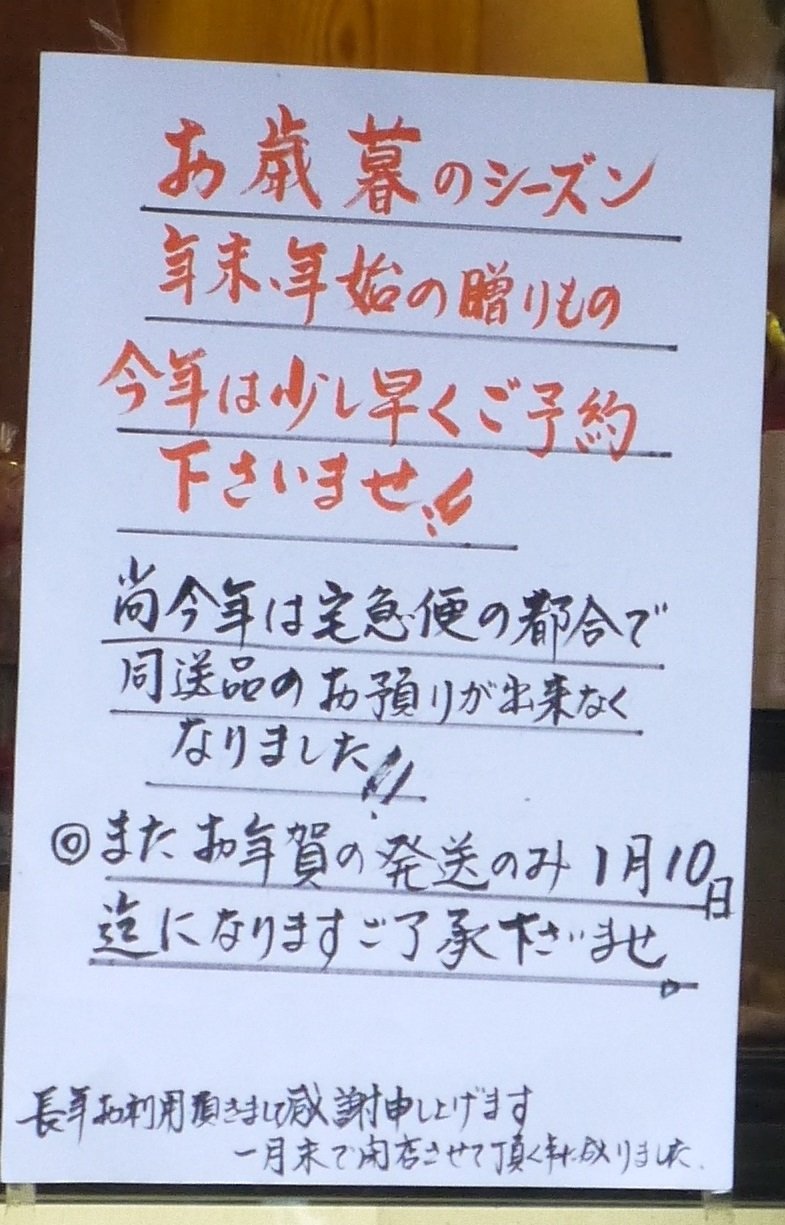 お歳暮のシーズン
年末、年始の贈りもの
今年は少し早くご予約
下さいませ!!
尚今年は宅急便の都合で
同送品のお預りが出来なく
なりました!!
◎またお年賀の発送のみ1月10日
迄になりますご了承下さいませ
長年お利用頂きまして感謝申し上げます
一月末で閉店させて頂く事に成りました.